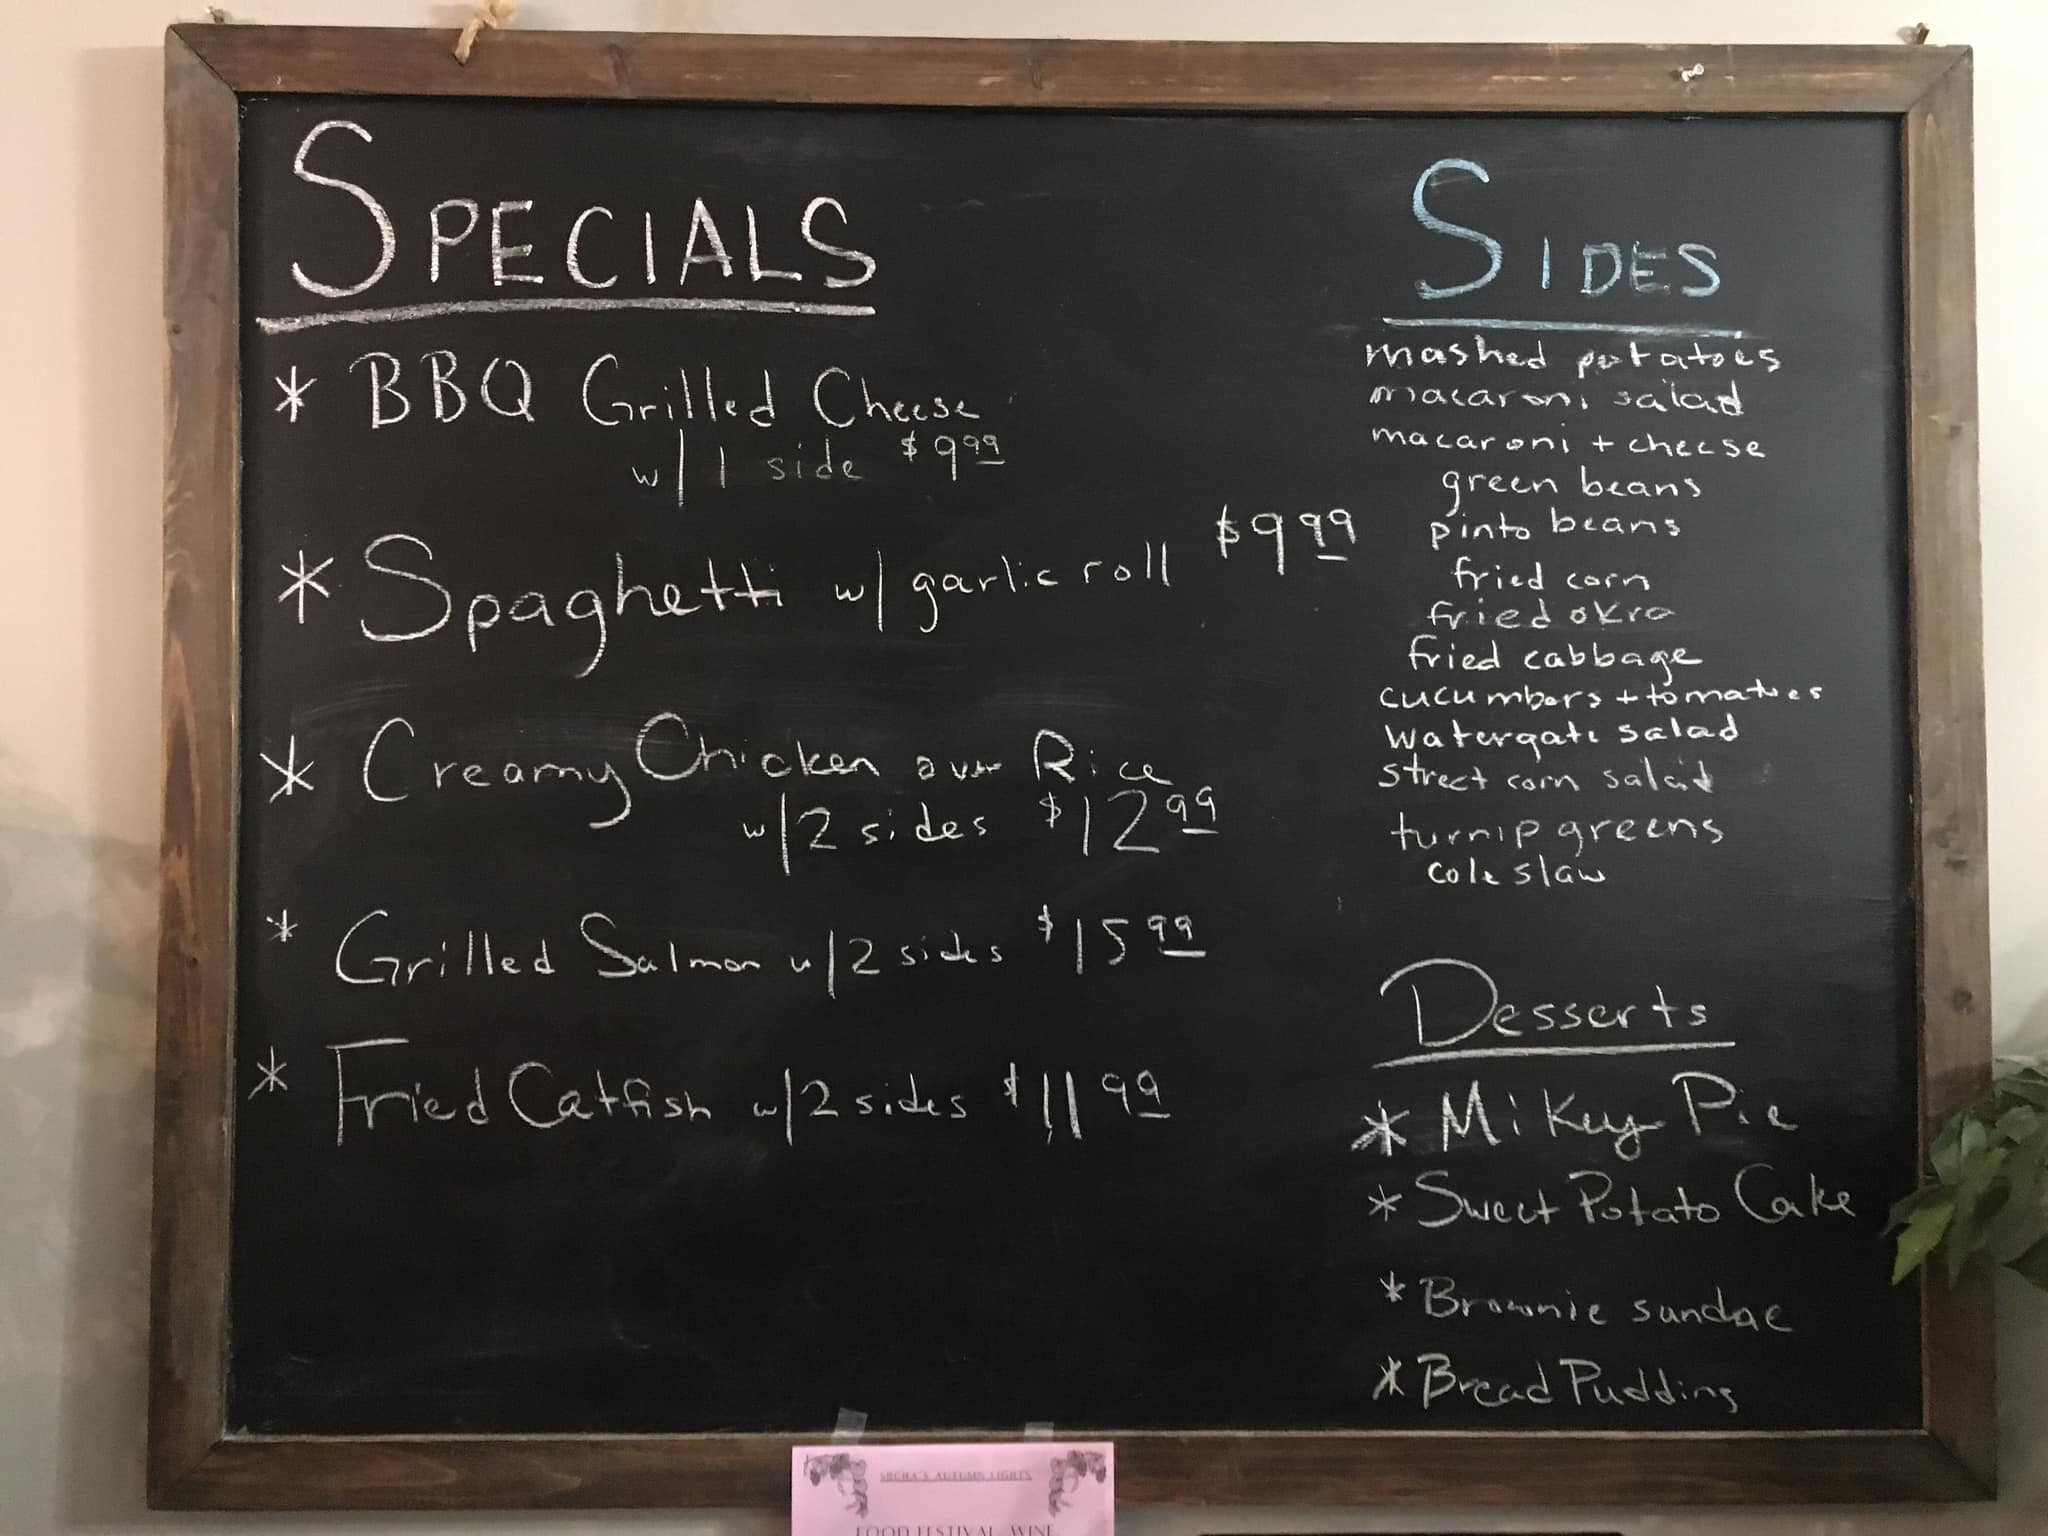 SPECIALS
* BBQ Grilled Cheese
w/ 1 side $9.99
* Spaghetti w/ garlic roll $9.99
* Creamy Chicken over Rice
w/ 2 sides $12.99
* Grilled Salmon w/ 2 sides $15.99
* Fried Catfish w/ 2 sides $11.99
SIDES
mashed potatoes
macaroni salad
macaroni + cheese
green beans
pinto beans
fried corn
fried okra
fried cabbage
cucumbers + tomatoes
watergate salad
street corn salad
turnip greens
cole slaw
Desserts
* Mikey Pie
* Sweet Potato Cake
* Brownie sundae
* Bread Pudding
AUTUMN LIGHTS
FOOD FESTIVAL, WINE